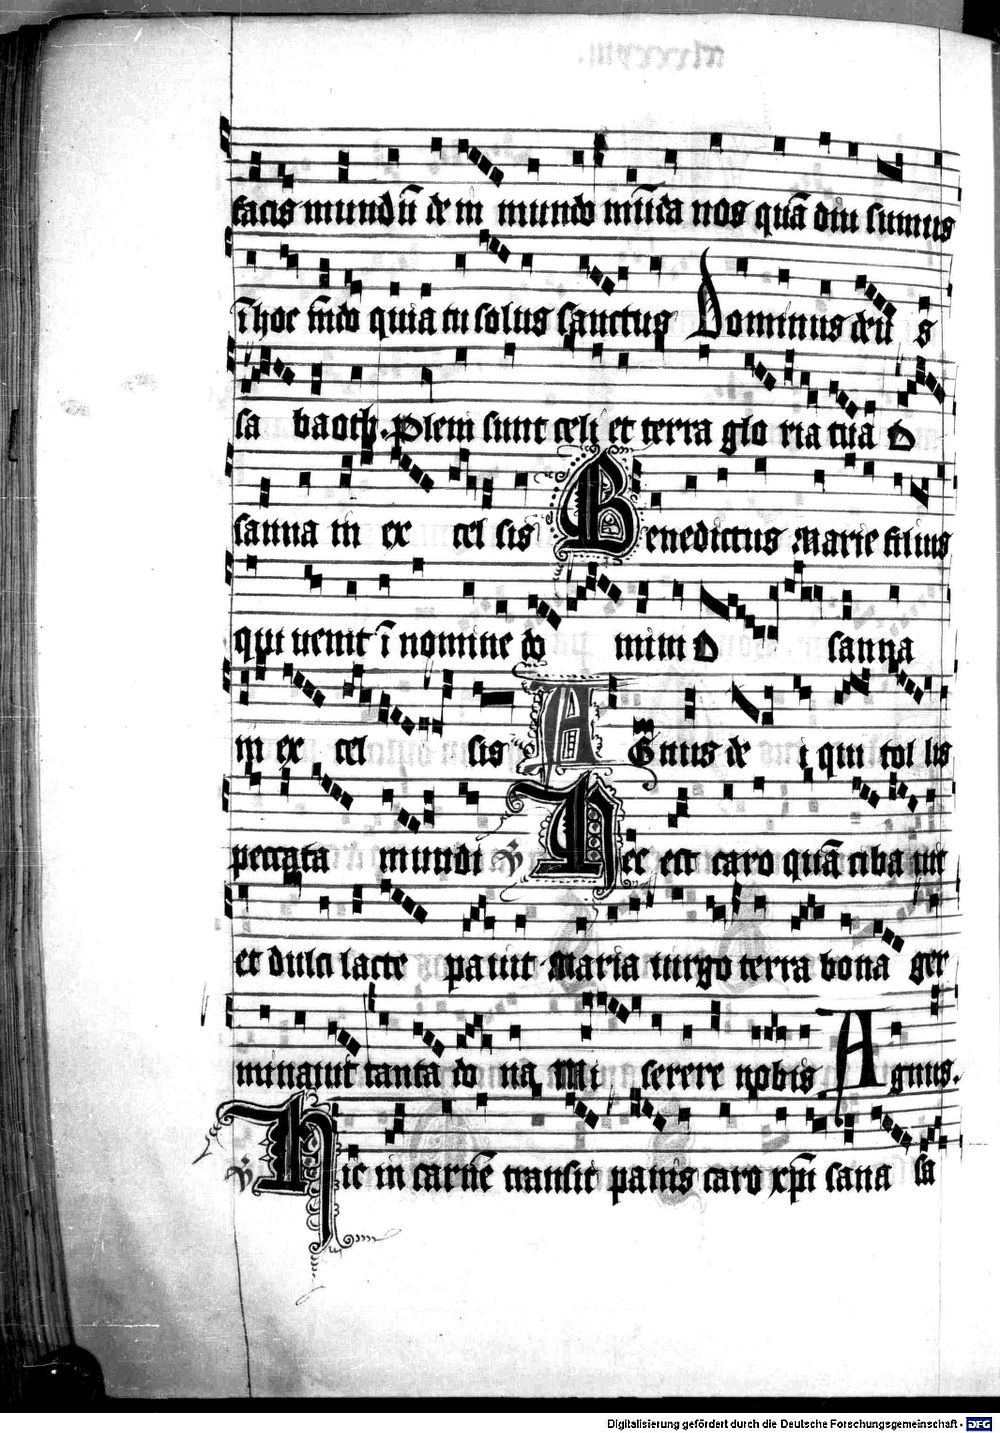 facis mundū de in mundo mūda nos quā diu sumus
ī hoc mūdo quia tu solus sanctus Dominus deu s
sa baoth. Pleni sunt celi et terra glo ria tua O
sanna in ex cel sis Benedictus Marie filius
qui uenit ī nomine do mini O sanna
in ex cel sis Agnus de i qui tol lis
peccata mundi ℣ Hec est caro quā ciba uit
et dulci lacte pauit Maria uirgo terra bona ger
minauit tanta do na Mi serere nobis Agnus.
℣ Hic in carnē transit panis caro xp̄i sana sa
Digitalisierung gefördert durch die Deutsche Forschungsgemeinschaft - DFG